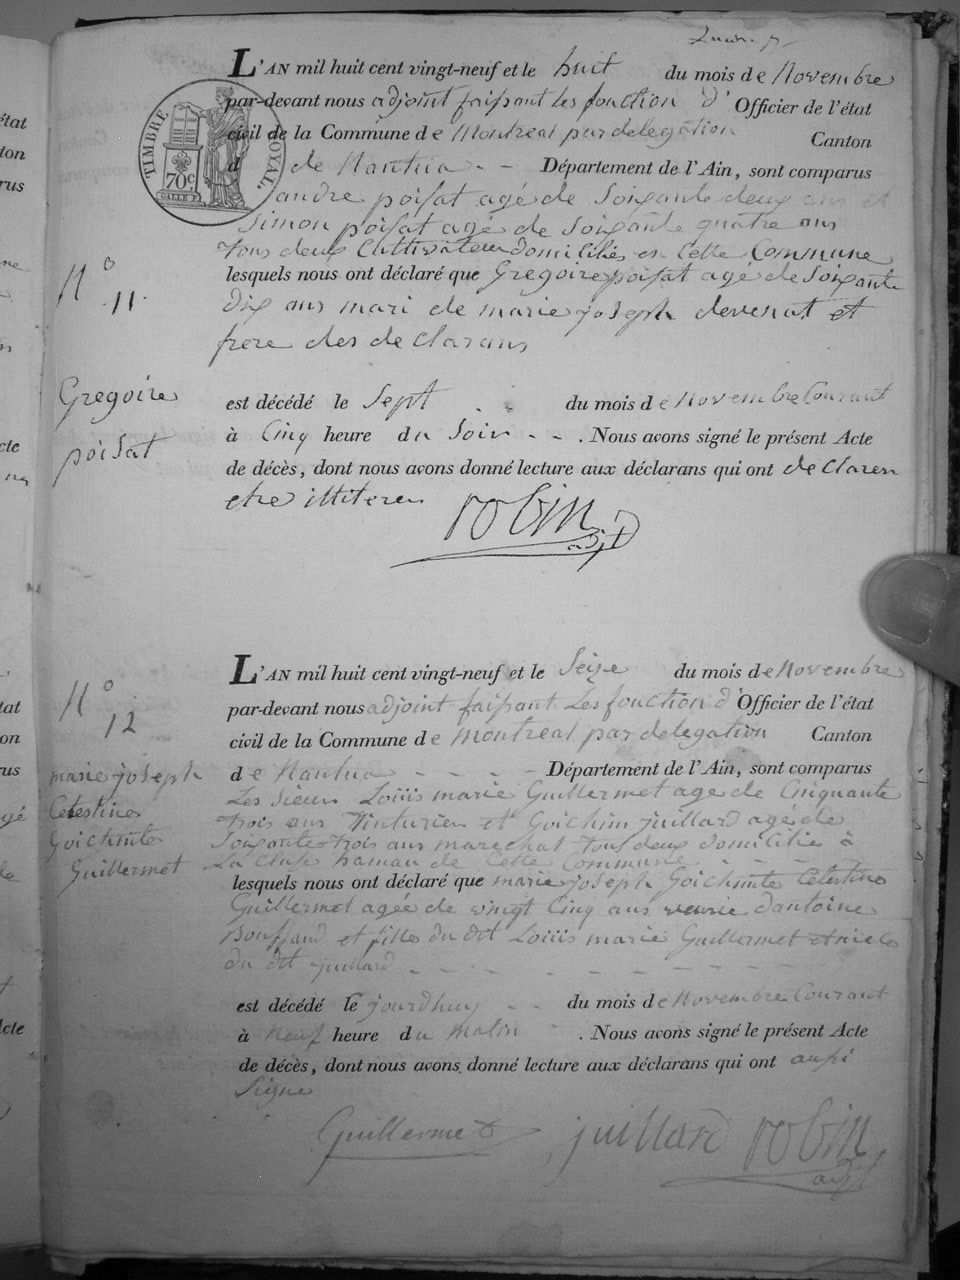 L'AN mil huit cent vingt-neuf et le huit du mois de Novembre
par-devant nous adjoint faissant les fonction d' Officier de l'état
civil de la Commune de Montreal par delegation Canton
d de Nantua - - Département de l'Ain, sont comparus
andre poisat agé de Soixante deux ans et
Simon poisat agé de Soixante quatre ans
tous deux Cultivateur domiciliés en Cette Commune
lesquels nous ont déclaré que Gregoire poisat agé de Soixante
dix ans mari de marie joseph devenat et
frere des declarans
est décédé le Sept - - du mois de Novembre Courant
à Cinq heure du Soir - - . Nous avons signé le présent Acte
de décès, dont nous avons donné lecture aux déclarans qui ont declaren
etre illiteren
robin
adjt
TIMBRE ROYAL.
70c.
N° 11.
Gregoire
poisat
L'AN mil huit cent vingt-neuf et le Seize du mois de Novembre
par-devant nous adjoint faissant Les fonction d' Officier de l'état
civil de la Commune de Montreal par delegation Canton
de Nantua - - - - Département de l'Ain, sont comparus
Les Sieur Louis marie Guillermet age de Cinquante
trois ans et Goichin juillard agé de
Soixante trois ans marechat tous deux domicilié à
La Cluse hamau de Cette Commune - - - -
lesquels nous ont déclaré que marie joseph Goichinte Celestine
Guillermet agée de vingt Cinq ans veuve dantoine
Bouffand et fille du dit Louis marie Guillermet et niece
du dit juillard - - - - - - - -
est décédé le jourdhuy - - du mois de Novembre Courant
à Neuf heure du Matin - . Nous avons signé le présent Acte
de décès, dont nous avons donné lecture aux déclarans qui ont aussi
Signe
Guillermet juillard robin
adjt
N° 12
marie joseph
Celestine
Goichinte
Guillermet